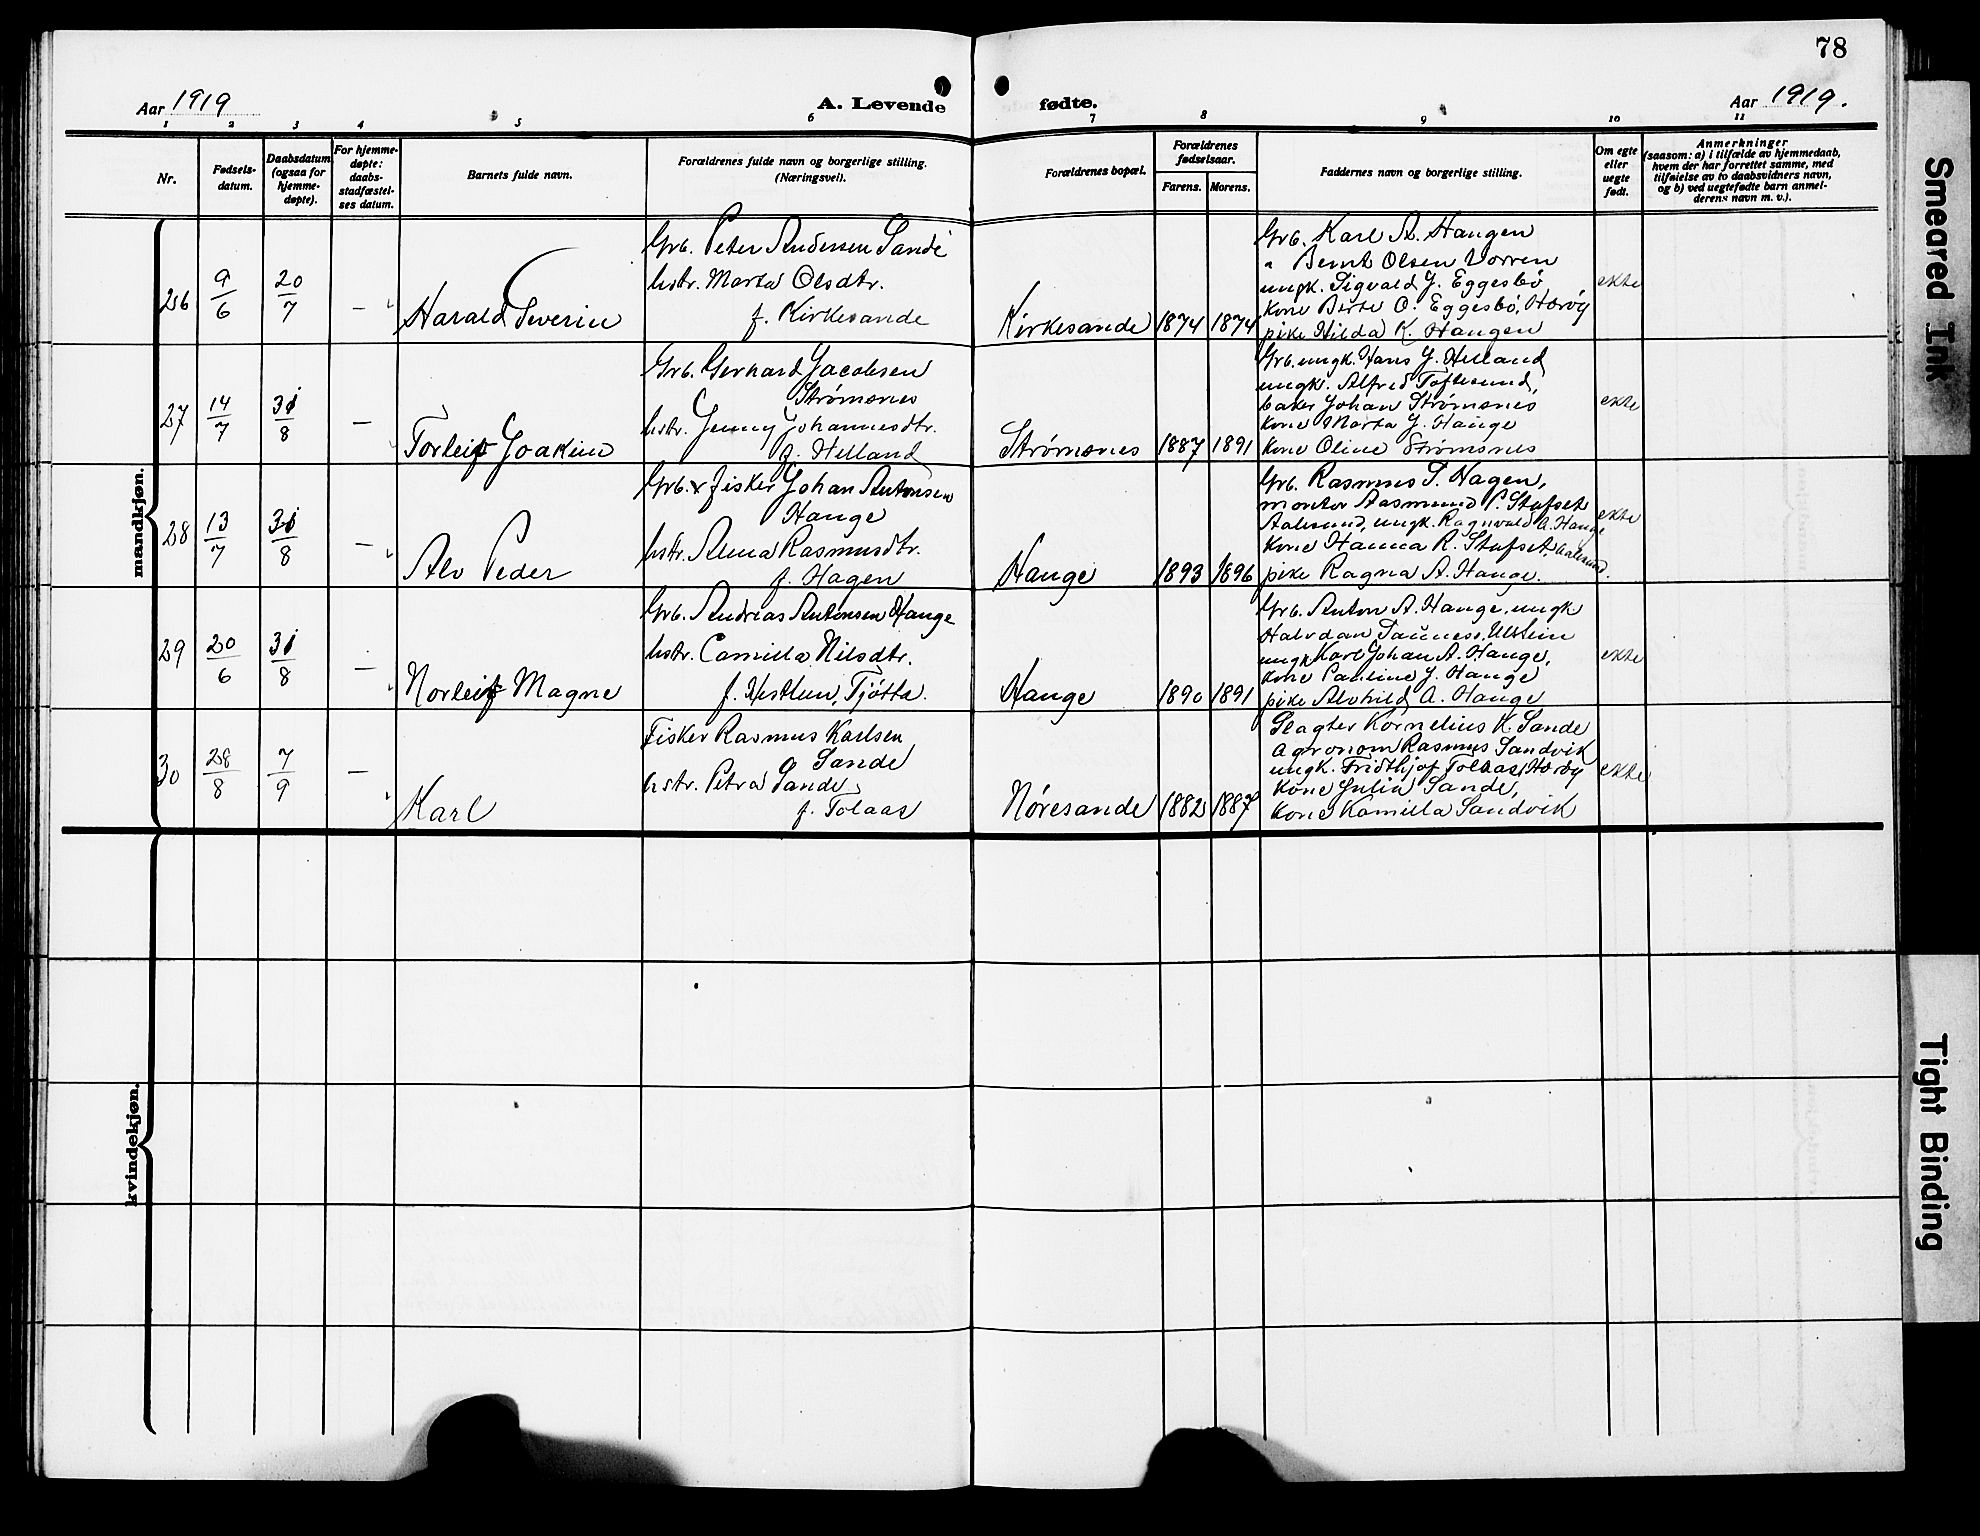 78
Aar 1919
A. Levende
fødte.
Aar 1919.
1 2 3 4 5 6 7 8 9 10 11
Nr.
Fødsels-
datum.
Daabsdatum
(ogsaa for
hjemme-
døpte).
For hjemme-
døpte:
daabs-
stadfæstel-
ses datum.
Barnets fulde navn.
Forældrenes fulde navn og borgerlige stilling.
(Næringsvei).
Forældrenes bopæl.
Forældrenes
fødselsaar.
Farens. Morens.
Faddernes navn og borgerlige stilling.
Om egte
eller
uegte
født.
Anmerkninger
(saasom: a) i tilfælde av hjemmedaab,
hvem der har forrettet samme, med
tilføielse av to daabsvidners navn,
og b) ved uegtefødte barn anmel-
derens navn m. v.).
mandkjøn.
26 9/6 20/7 —
Harald Severin
Grb. Peter Andersen Sande
hstr. Marta Olsdtr.
f. Kirkesande
Kirkesande 1874 1874
Grb. Karl A. Haugen
" Bernt Olsen Vorren
ungk. Sigvald J. Eggesbö
kone Berte O. Eggesbö, Heröy
pike Hilda K. Haugen
ekte
27 14/7 31/8 —
Torleif Joakim
Grb. Gerhard Jacobsen
Strømsnes
hstr. Jenny Johannesdtr.
f. Helland
Strømsnes 1887 1891
Grb. ungk. Hans J. Helland
ungk. Alfred Toftesund,
baker Johan Strømsnes
kone Marta J. Hauge
kone Oline Strømsnes
ekte
28 13/7 31/8 —
Alv Peder
Grb. & fisker Johan Antonsen
Hauge
hstr. Anna Rasmusdtr.
f. Hagen
Hauge 1893 1896
Grb. Rasmus T. Hagen,
montör Aasmund P. Stufset
Aalesund, ungk. Ragnvald A. Hauge
kone Hanna R. Stufset, Aalesund.
pike Ragna A. Hauge.
ekte
29 20/6 31/8 —
Norleif Magne
Grb. Andreas Antonsen Hauge
hstr. Camilla Nilsdtr.
f. Hesthun, Tjøtta.
Hauge 1890 1891
Grb. Anton A. Hauge, ungk
Halvdan Sauness, Ulstein
ungk Karl Johan A. Hauge,
kone Pauline J. Hauge
pike Alvhild A. Hauge
ekte
30 28/8 7/9 —
Karl
Fisker Rasmus Karlsen
Sande
hstr. Petra Sande
f. Tolaas
Nöresande 1882 1887
Slagter Kornelius K. Sande
Agronom Rasmus Sandvik
ungk. Fridthjof Tolaas, Heröy
Kone Julia Sande,
kone Kamilla Sandvik
ekte
kvindekjøn.
Smeared Ink
Tight Binding